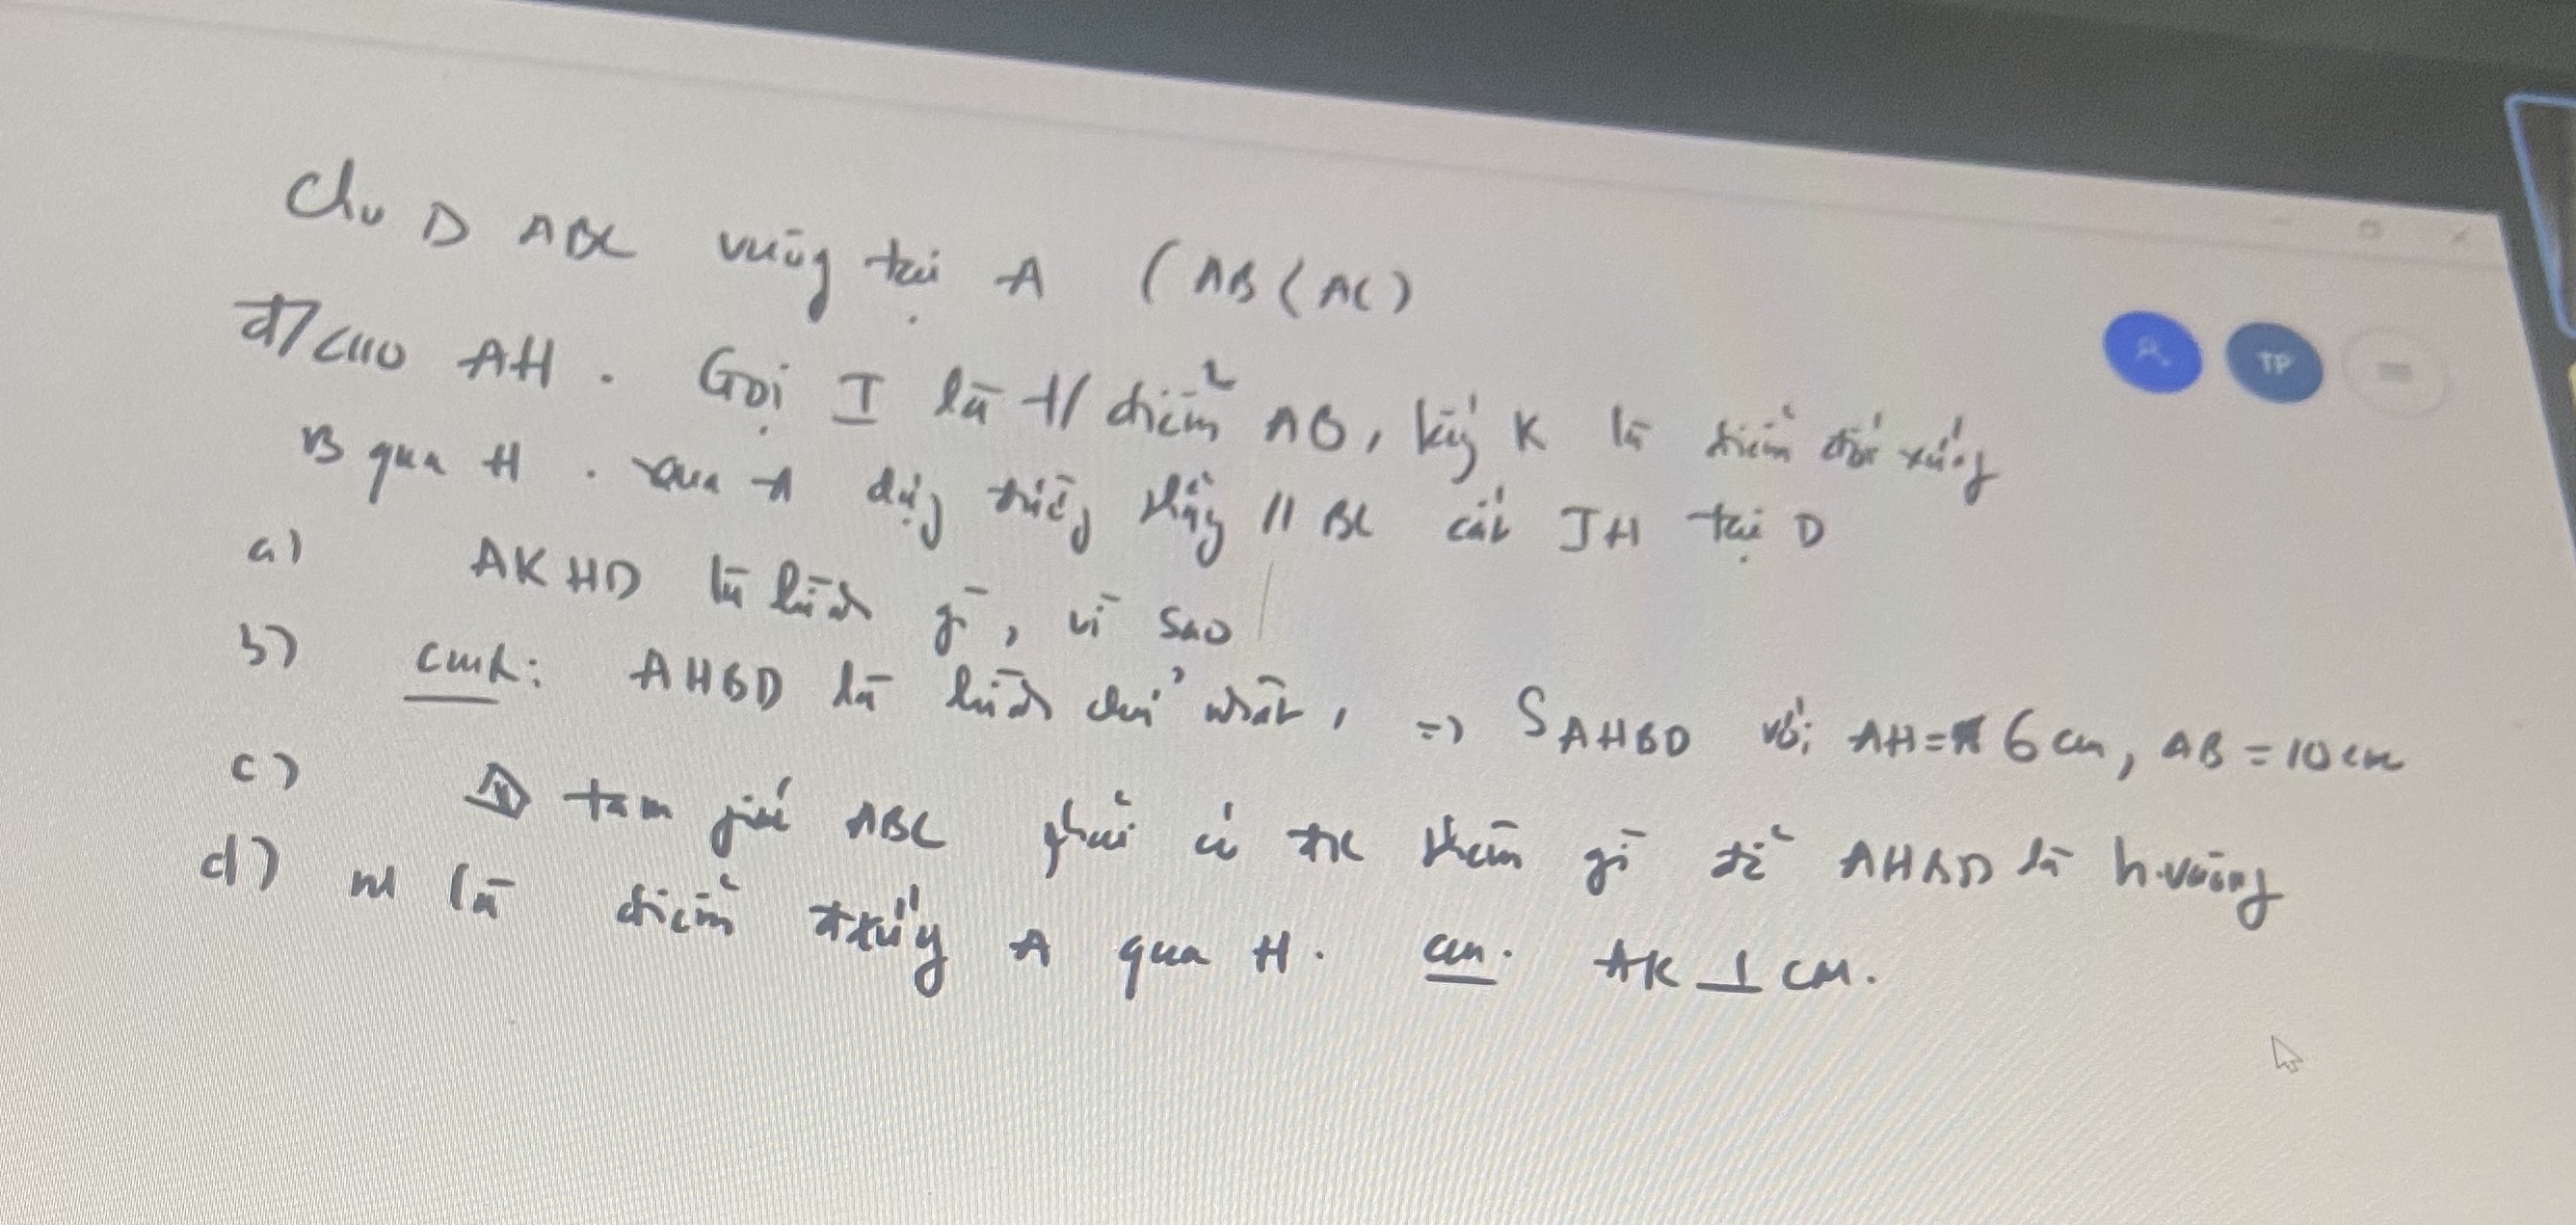 Cho Δ ABC vuông tại A (AB < AC)
đ/ cao AH. Gọi I là t/ điểm AB, lấy K là điểm đối xứng
B qua H. Qua A dựng đường thẳng // BC cắt IH tại D
a) AKHD là hình gì, vì sao
b) cmh: AHBD là hình chữ nhật, => S AHBD với AH = 6 cm, AB = 10 cm
c) tam giác ABC phải có đk thêm gì để AHBD là h.vuông
d) M là điểm đ xứng A qua H. cm. AK ⊥ CM.
TP